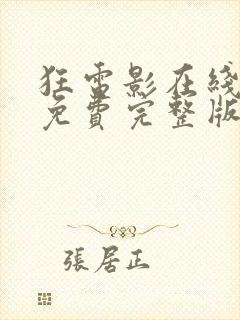 狂雷影在綫
免費完整版
張居正